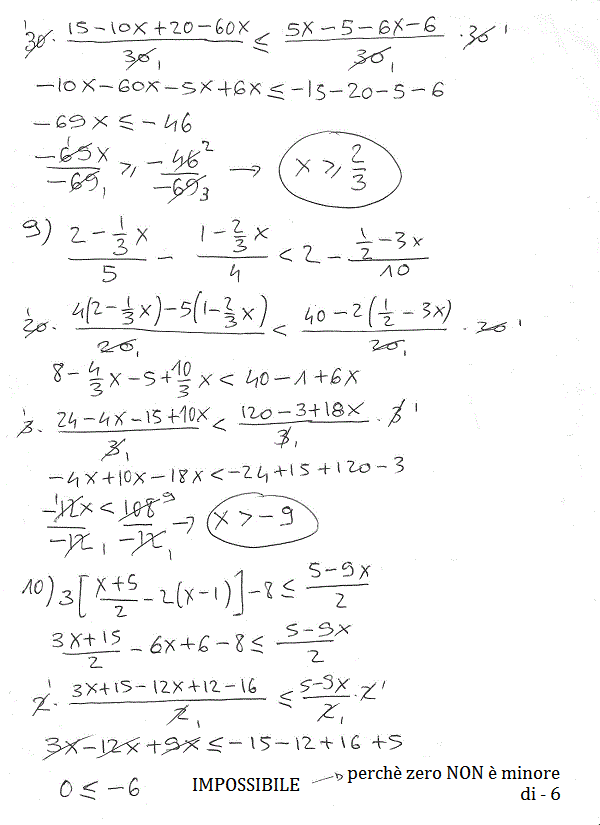 30 · (15 - 10x + 20 - 60x)/30 ≤ (5x - 5 - 6x - 6)/30 · 30
-10x - 60x - 5x + 6x ≤ -15 - 20 - 5 - 6
-69x ≤ -46
-69x/-69 ≥ -46/-69 → x ≥ 2/3
9) (2 - 1/3 x)/5 - (1 - 2/3 x)/4 < 2 - (1/2 - 3x)/10
20 · (4(2 - 1/3 x) - 5(1 - 2/3 x))/20 < (40 - 2(1/2 - 3x))/20 · 20
8 - 4/3 x - 5 + 10/3 x < 40 - 1 + 6x
3 · (24 - 4x - 15 + 10x)/3 < (120 - 3 + 18x)/3 · 3
-4x + 10x - 18x < -24 + 15 + 120 - 3
-12x/-12 < 108/-12 → x > -9
10) 3[(x+5)/2 - 2(x-1)] - 8 ≤ (5 - 9x)/2
(3x + 15)/2 - 6x + 6 - 8 ≤ (5 - 9x)/2
2 · (3x + 15 - 12x + 12 - 16)/2 ≤ (5 - 9x)/2 · 2
3x - 12x + 9x ≤ -15 - 12 + 16 + 5
0 ≤ -6 IMPOSSIBILE → perchè zero NON è minore
di - 6